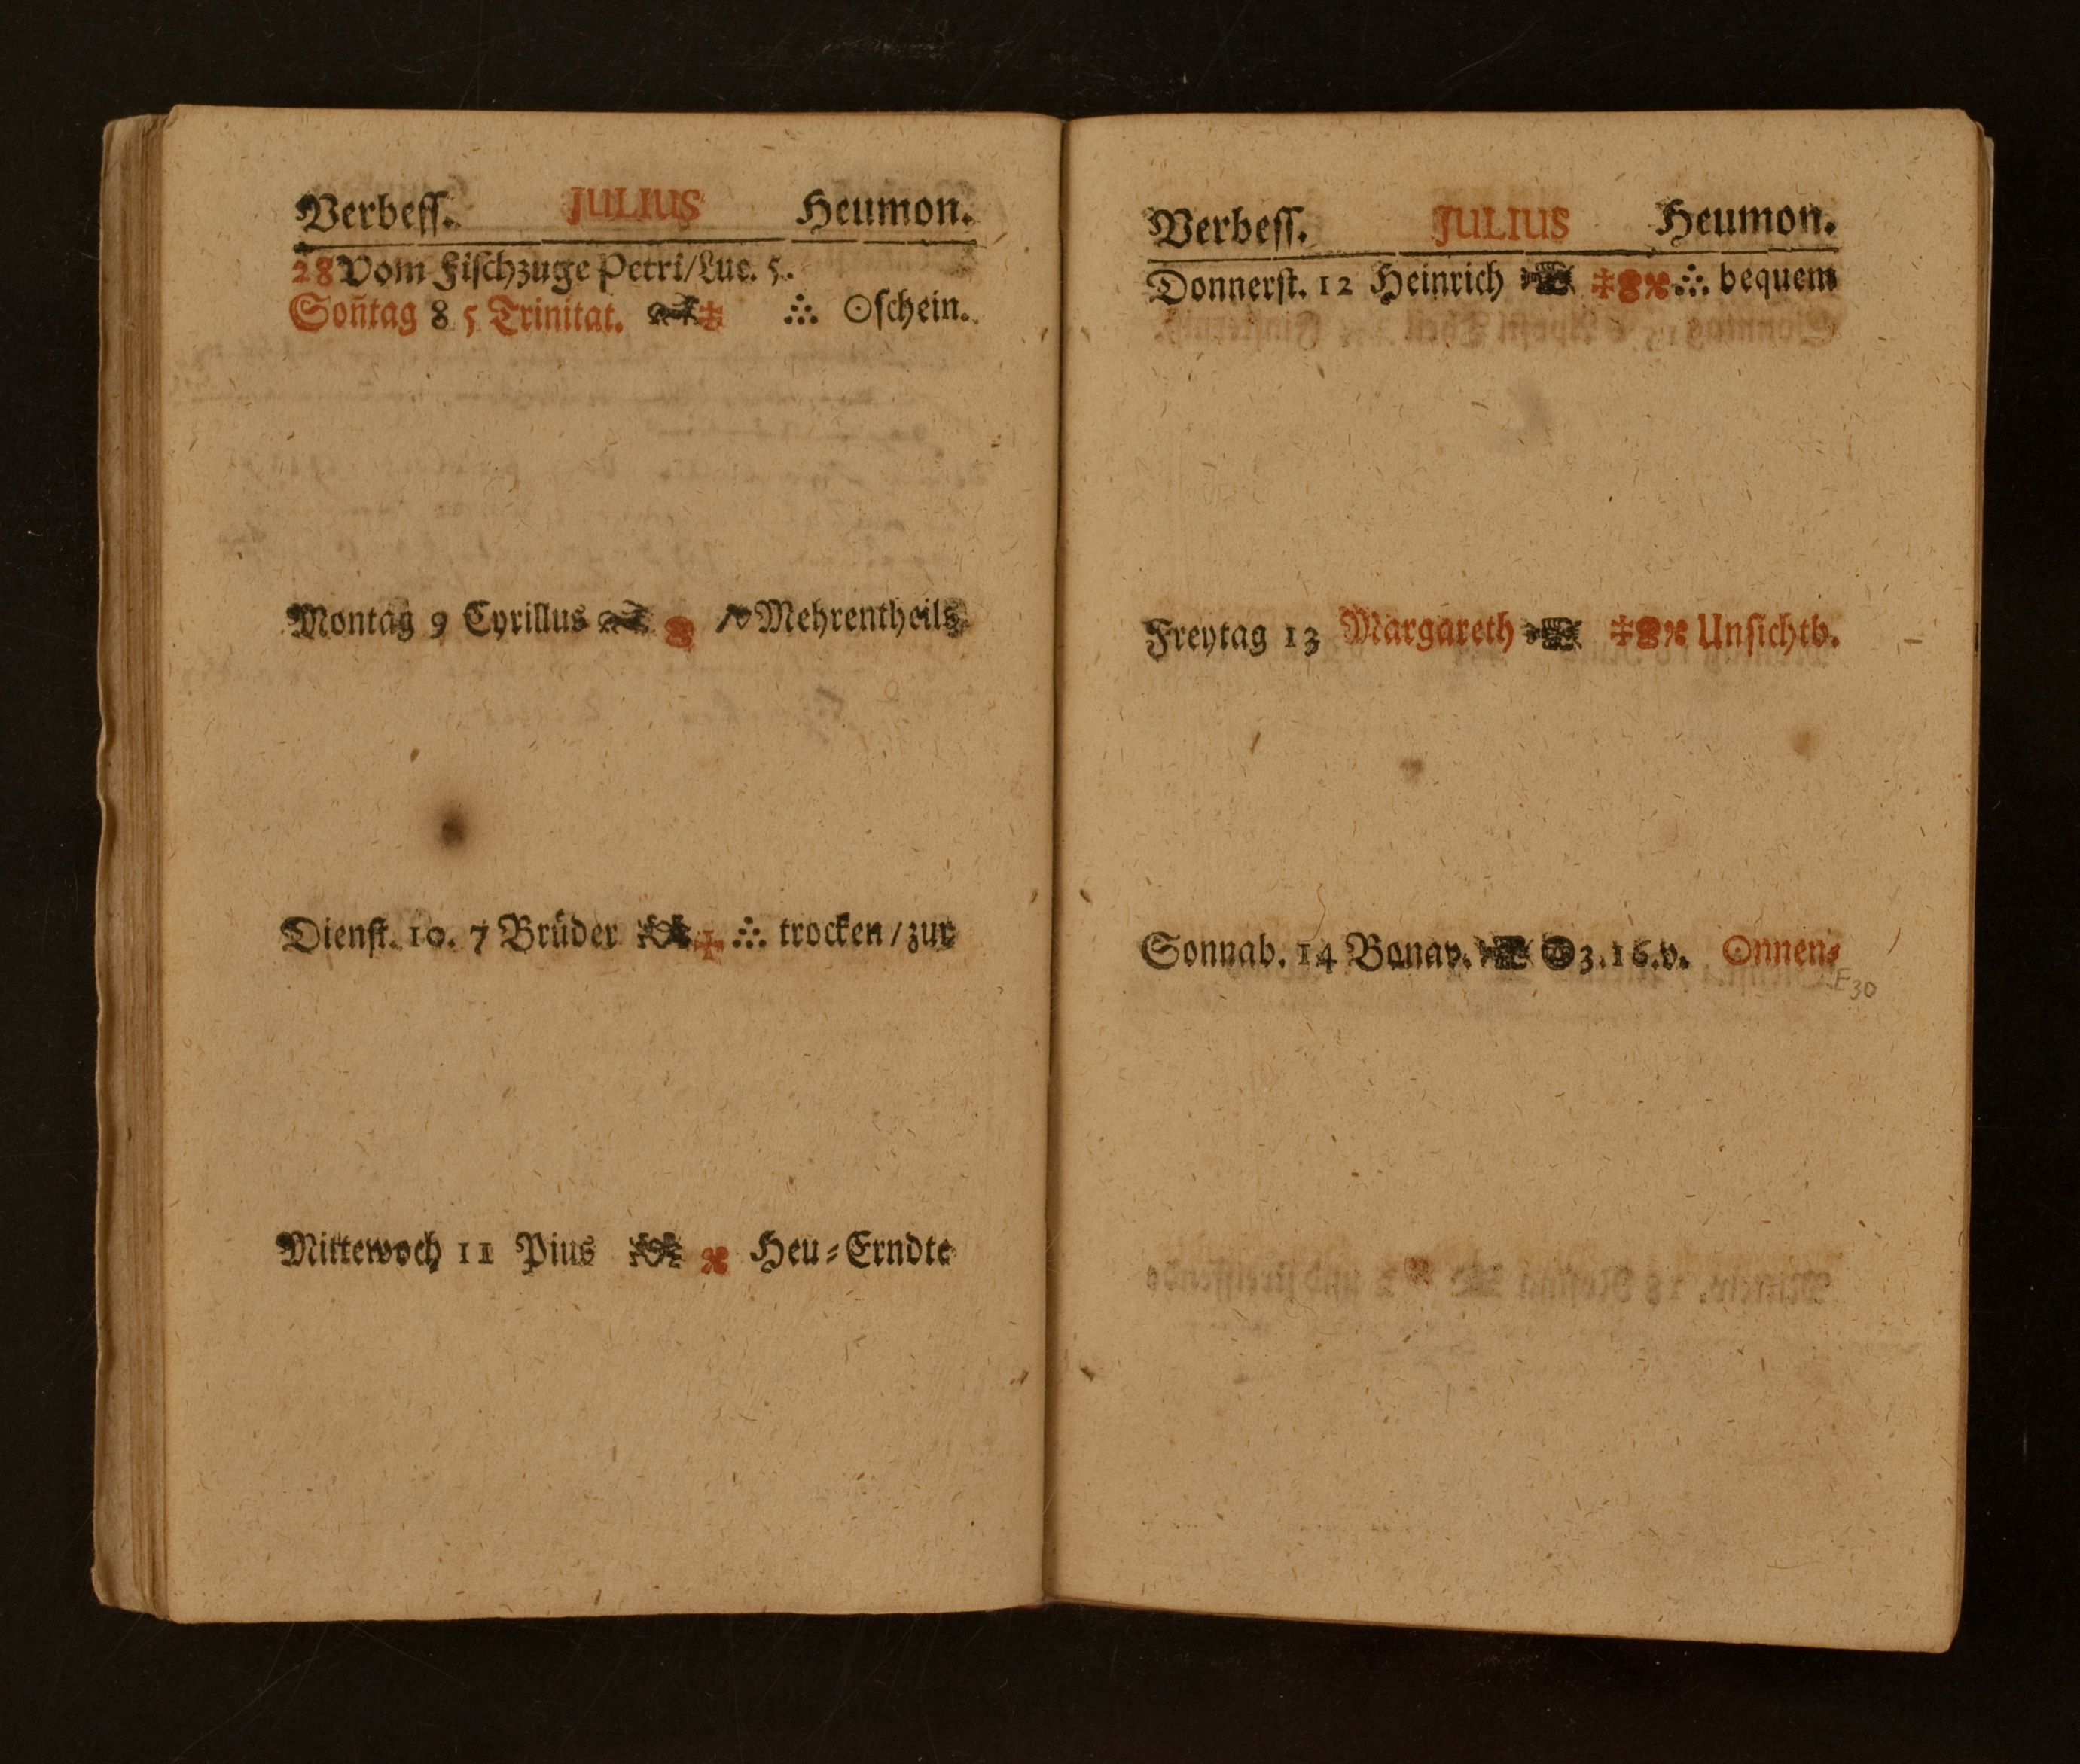 Verbess. JULIUS Heumon.
28 Vom Fischzuge Petri/Luc. 5.
Soñtag 8 5 Trinitat. ⊙schein.
Montag 9 Cyrillus Mehrentheils
Dienst. 10. 7 Brüder trocken/zur
Mittewoch 11 Pius Heu-Erndte
Verbess. JULIUS Heumon.
Donnerst. 12 Heinrich bequem
Freytag 13 Margareth Unsichtb.
Sonnab. 14 Bonav. 3.16.v. ⊙nnen-
E30